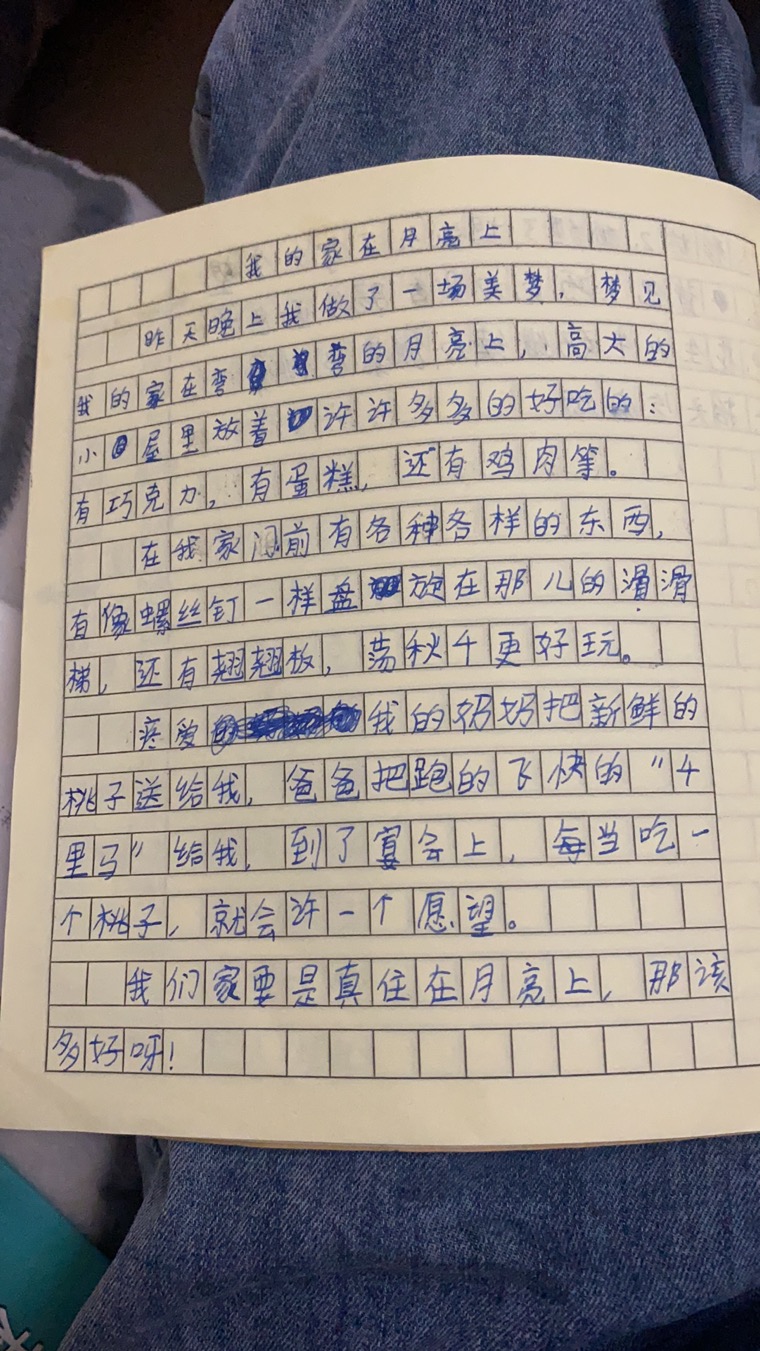 我的家在月亮上
昨天晚上我做了一场美梦，梦见
我的家在弯弯的月亮上，高大的
小屋里放着许许多多的好吃的：
有巧克力，有蛋糕，还有鸡肉等。
在我家门前有各种各样的东西，
有像螺丝钉一样盘旋在那儿的滑滑
梯，还有翘翘板，荡秋千更好玩。
疼爱我的妈妈把新鲜的
桃子送给我，爸爸把跑的飞快的“千
里马”给我，到了宴会上，每当吃一
个桃子，就会许一个愿望。
我们家要是真住在月亮上，那该
多好呀！